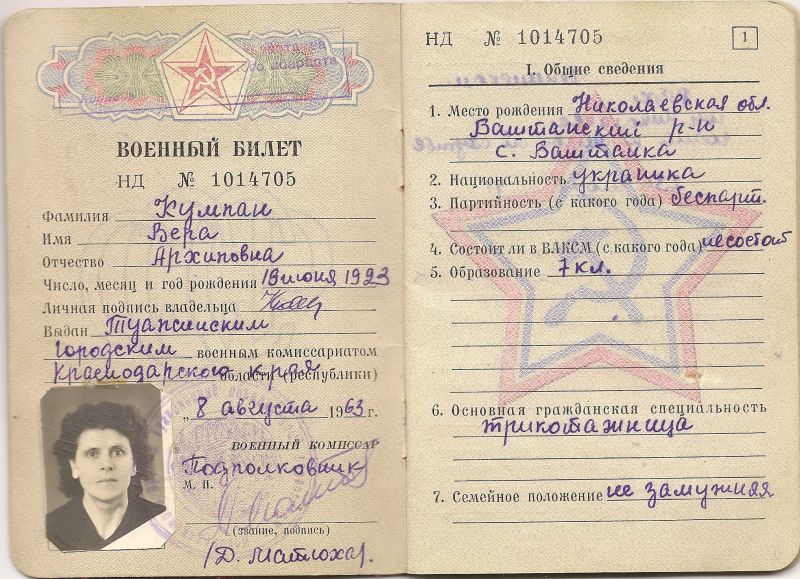 ВОЕННЫЙ БИЛЕТ
НД № 1014705
Фамилия Кумпан
Имя Вера
Отчество Архиповна
Число, месяц и год рождения 19 июня 1923
Личная подпись владельца
Выдан Туапсинским
городским военным комиссариатом
Краснодарского края области (республики)
„8 августа 1963 г.
ВОЕННЫЙ КОМИССАР
Подполковник
М. П.
(звание, подпись)
/Д. Матюха/.
НД № 1014705
1
I. Общие сведения
1. Место рождения Николаевская обл.
Ваштанский р-н
с. Ваштанка
2. Национальность украинка
3. Партийность (с какого года) беспарт.
4. Состоит ли в ВЛКСМ (с какого года) не состоит
5. Образование 7 кл.
6. Основная гражданская специальность
трикотажница
7. Семейное положение не замужняя